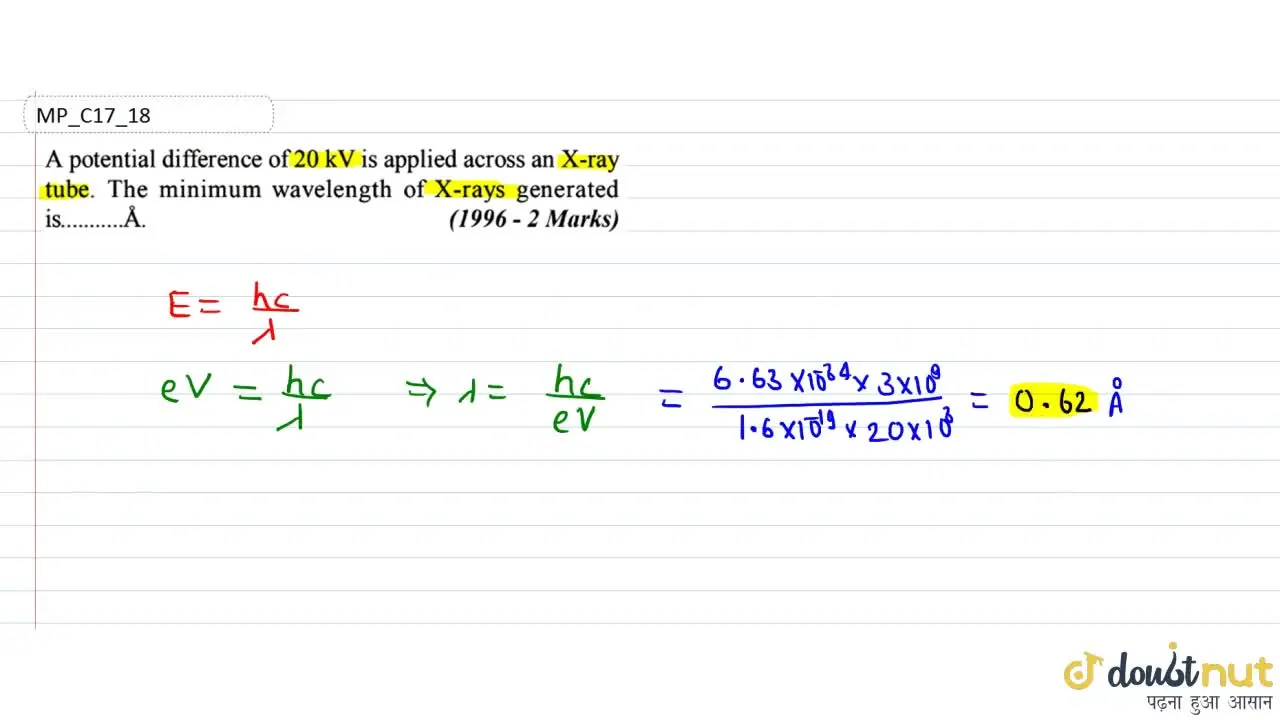 MP_C17_18
A potential difference of 20 kV is applied across an X-ray
tube. The minimum wavelength of X-rays generated
is...........Å. (1996 - 2 Marks)
E = hc/λ
eV = hc/λ ⇒ λ = hc/eV = 6.63×10⁻³⁴ × 3×10⁸ / 1.6×10⁻¹⁹ × 20×10³ = 0.62 Å
doubtnut
पढ़ना हुआ आसान